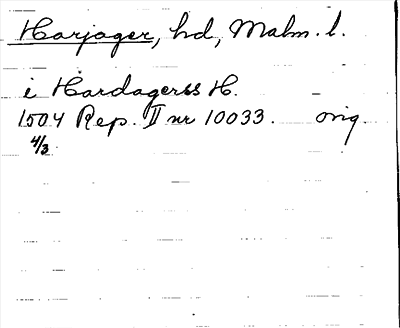 Harjager, hd, Malm. l.
i Hardagerss H.
1504 Rep. II nr 10033. orig.
4/3